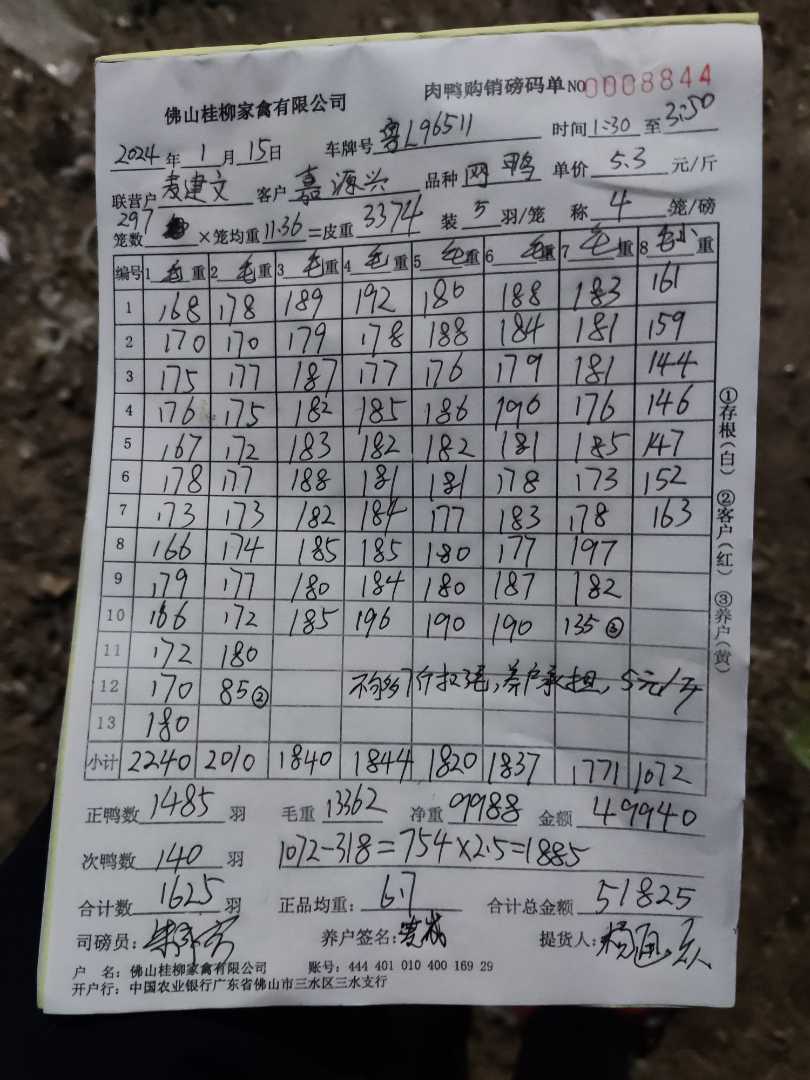 佛山桂柳家禽有限公司 肉鸭购销磅码单 NO 0008844
2024年1月15日 车牌号 粤L96511 时间1:30至3:50
联营户 麦建文 客户 嘉源兴 品种 网鸭 单价 5.3 元/斤
297
笼数 ×笼均重11.36=皮重 3374 装 5 羽/笼 称 4 笼/磅
编号 1毛重 2毛重 3毛重 4毛重 5毛重 6毛重 7毛重 8毛小重
1 168 178 189 192 186 188 183 161
2 170 170 179 178 188 184 181 159
3 175 177 187 177 176 179 181 144
4 176 175 182 185 186 190 176 146
5 167 172 183 182 182 181 185 147
6 178 177 188 181 181 178 173 152
7 173 173 182 184 177 183 178 163
8 166 174 185 185 180 177 197
9 179 177 180 184 180 187 182
10 166 172 185 196 190 190 135③
11 172 180
12 170 85② 养户承担,5元/
13 180
小计 2240 2010 1840 1844 1820 1837 1771 1072
正鸭数 1485 羽 毛重 13362 净重 9988 金额 49940
次鸭数 140 羽 1072-318=754×2.5=1885
合计数 1625 羽 正品均重: 6.7 合计总金额 51825
司磅员: 养户签名: 提货人:
户 名: 佛山桂柳家禽有限公司 账号: 444 401 010 400 169 29
开户行: 中国农业银行广东省佛山市三水区三水支行
①存根(白) ②客户(红) ③养户(黄)